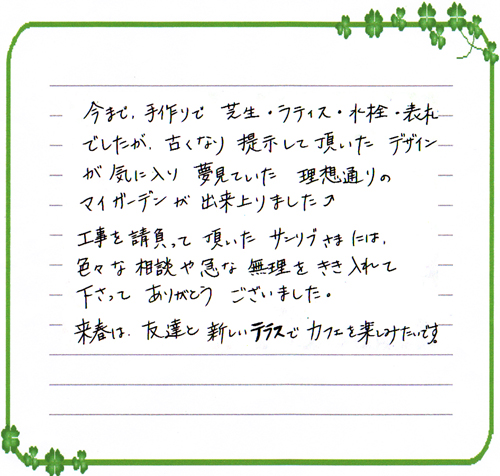 今まで、手作りで 芝生・ラティス・水栓・表札
でしたが、古くなり 提示して頂いた デザイン
が 気に入り 夢見ていた 理想通りの
マイガーデンが 出来上りました♪
工事を請負って 頂いた サンリブさまには、
色々な相談や急な 無理を きき入れて
下さって ありがとう ございました。
来春は、友達と 新しいテラスで カフェを楽しみたいです。